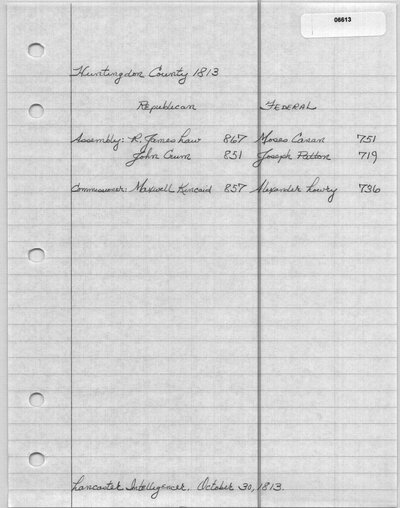 06613
Huntingdon County 1813
Republican FEDERAL
Assembly: R. James Law 867 Moses Canan 751
John Crum 851 Joseph Patton 719
Commissioner: Maxwell Kincaid 857 Alexander Lowry 736
Lancaster Intelligencer, October 30, 1813.